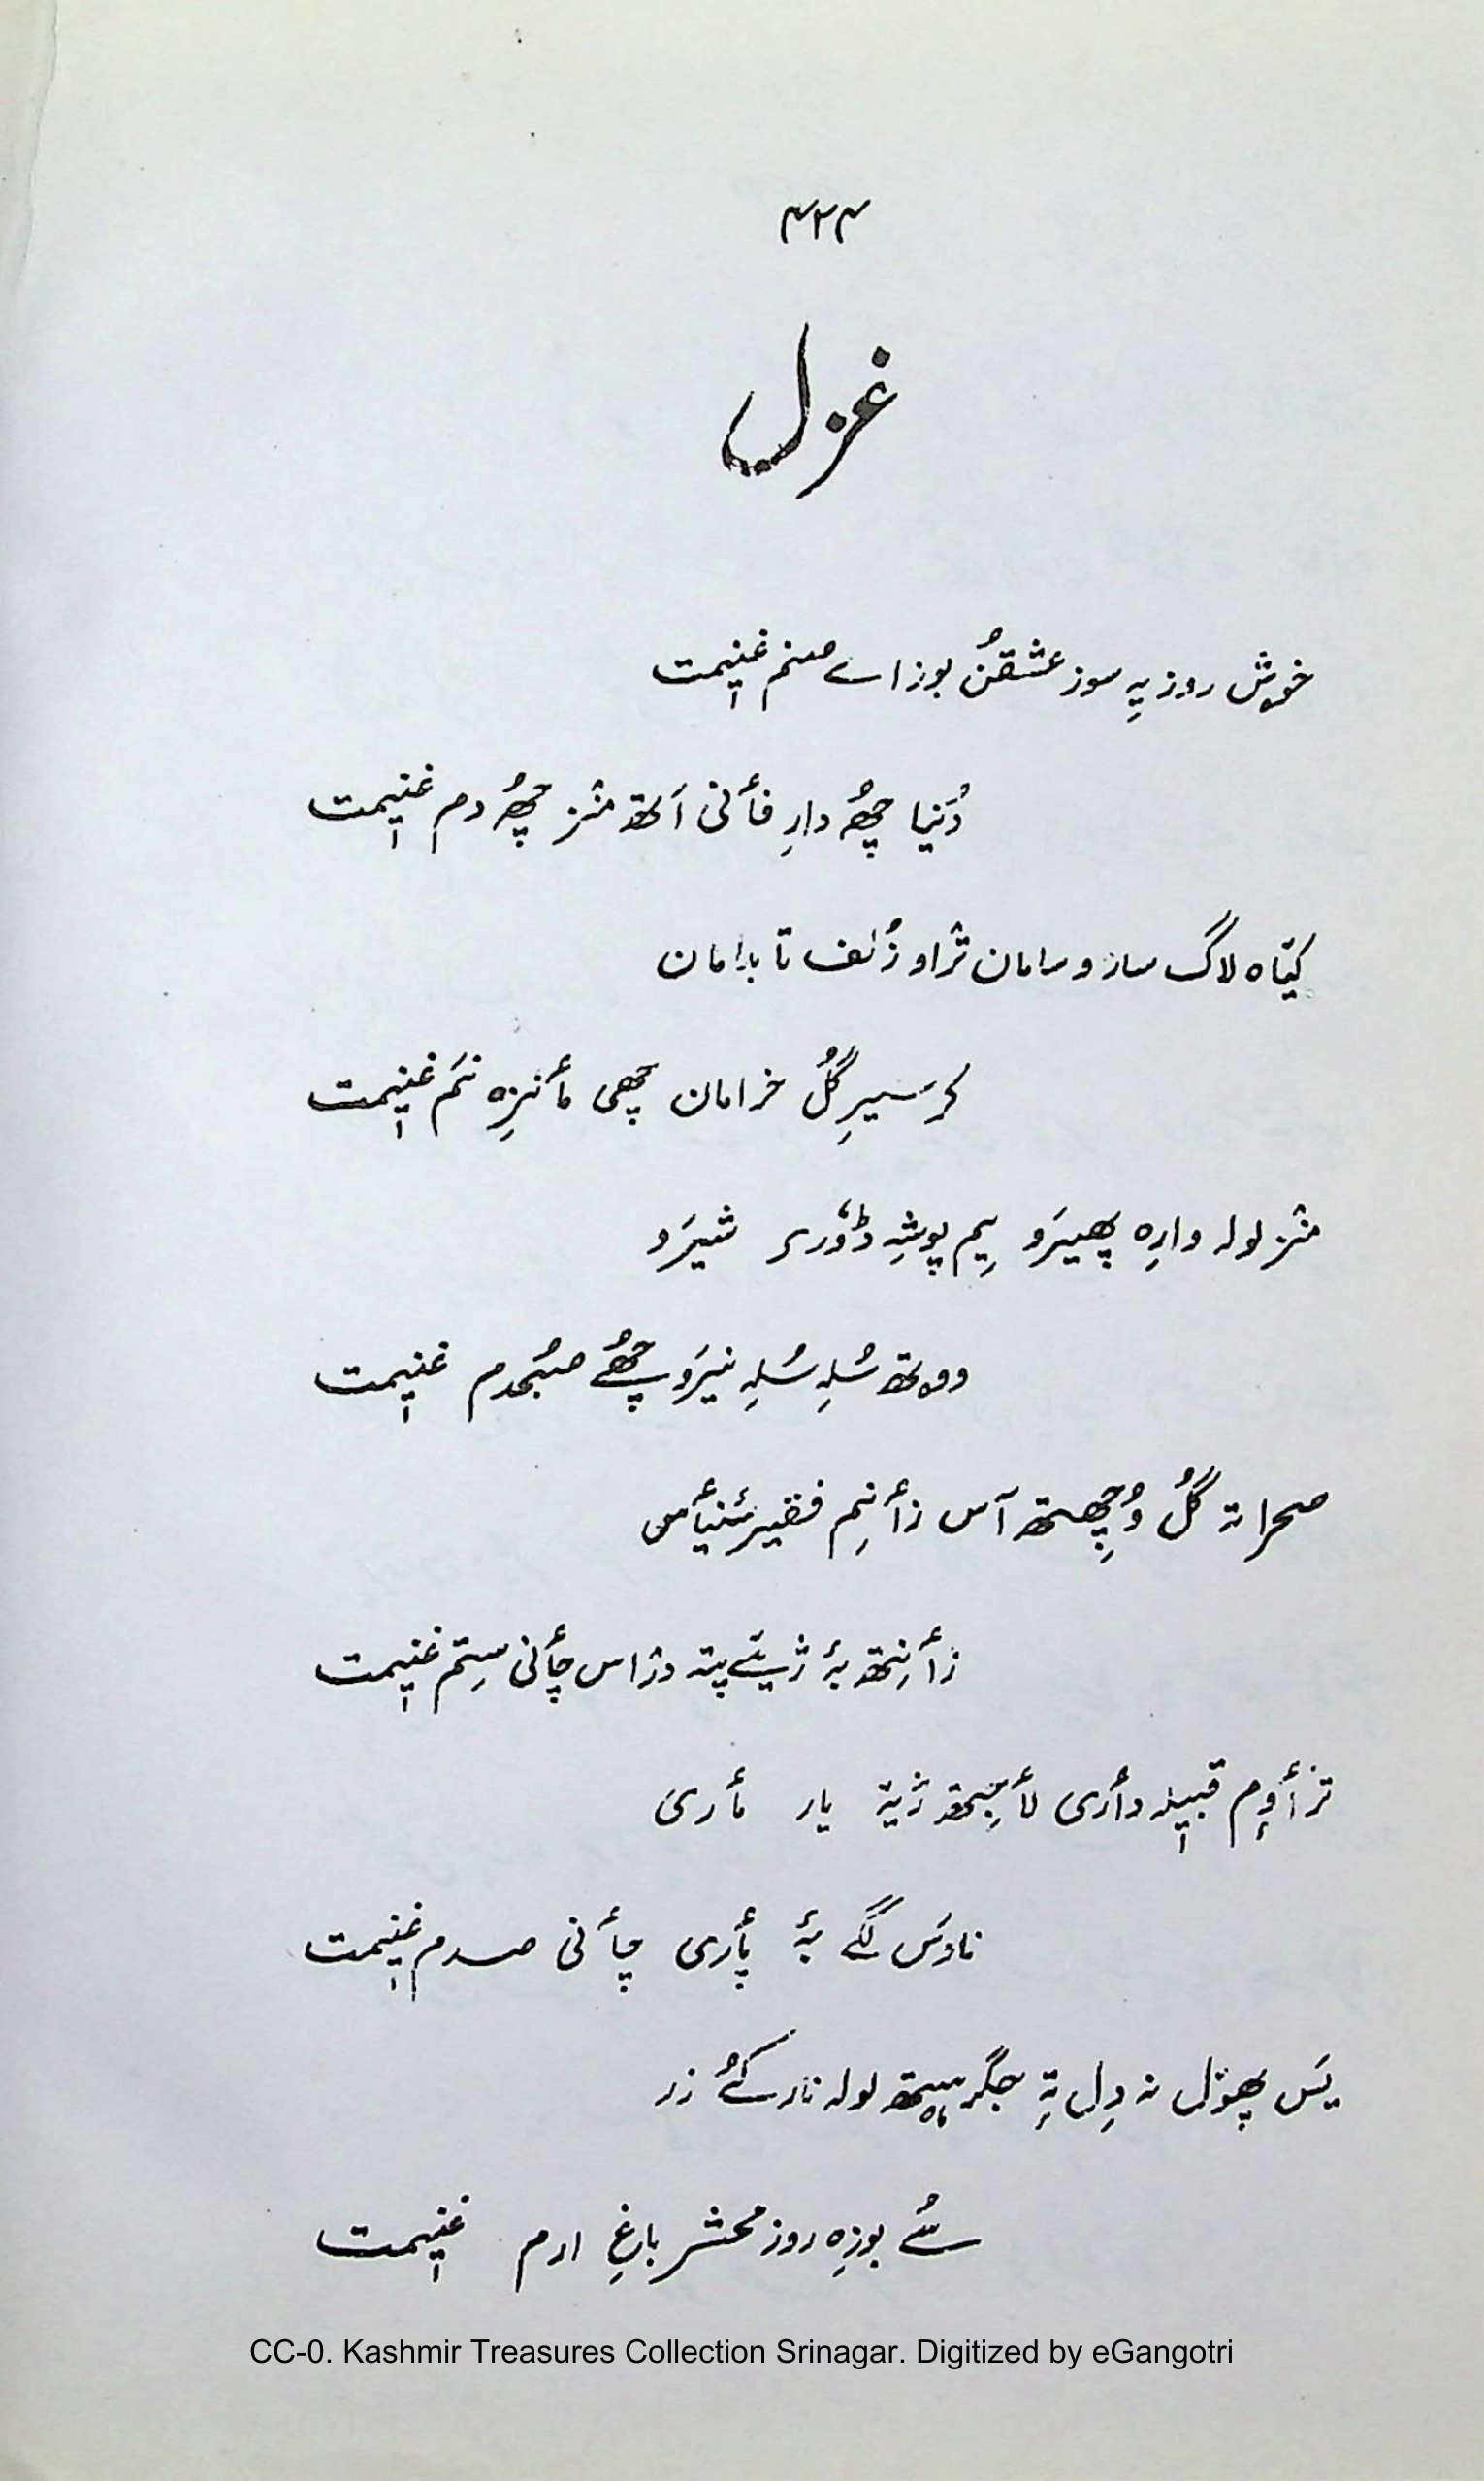 ۴۲۴
غزل
خوش روز یہِ سوز عشقنُ بوز اے صنم غنیٖمت
دُنیا چھُ دارِ فأنی اَتھ منٛز چھُ دم غنیٖمت
کیّاہ لاگ ساز و سامان ترٛاو زُلف تا بدامان
کر سیرِ گُل خرامان چھی مأنزِہ نَم غنیٖمت
منٛز لولہ وارِہ پھیرَو یِم پوشِہ ڈۄری شیرَو
ووتھ سُلہِ سُلہِ نیرَو چھُے صبُحدم غنیٖمت
صحرا تہ گُل وُچِھتھ آس زأنِم فقیر سٔنیأس
زأنِتھ بۂ ژیےٚ پتہ دژاس چأنی سِتم غنیٖمت
ترٛأوِم قبیٖلہ دأری لأجِتھ ژیہٚ یار مأری
نادَس لگے بۂ پأری چأنی صدم غنیٖمت
یَس پھوٚل نہ دِل تہٕ جگر پیٚتھ لولہ نار کُے زر
سُے بوزِہ روز محشر باغِ ارم غنیٖمت
CC-0. Kashmir Treasures Collection Srinagar. Digitized by eGangotri